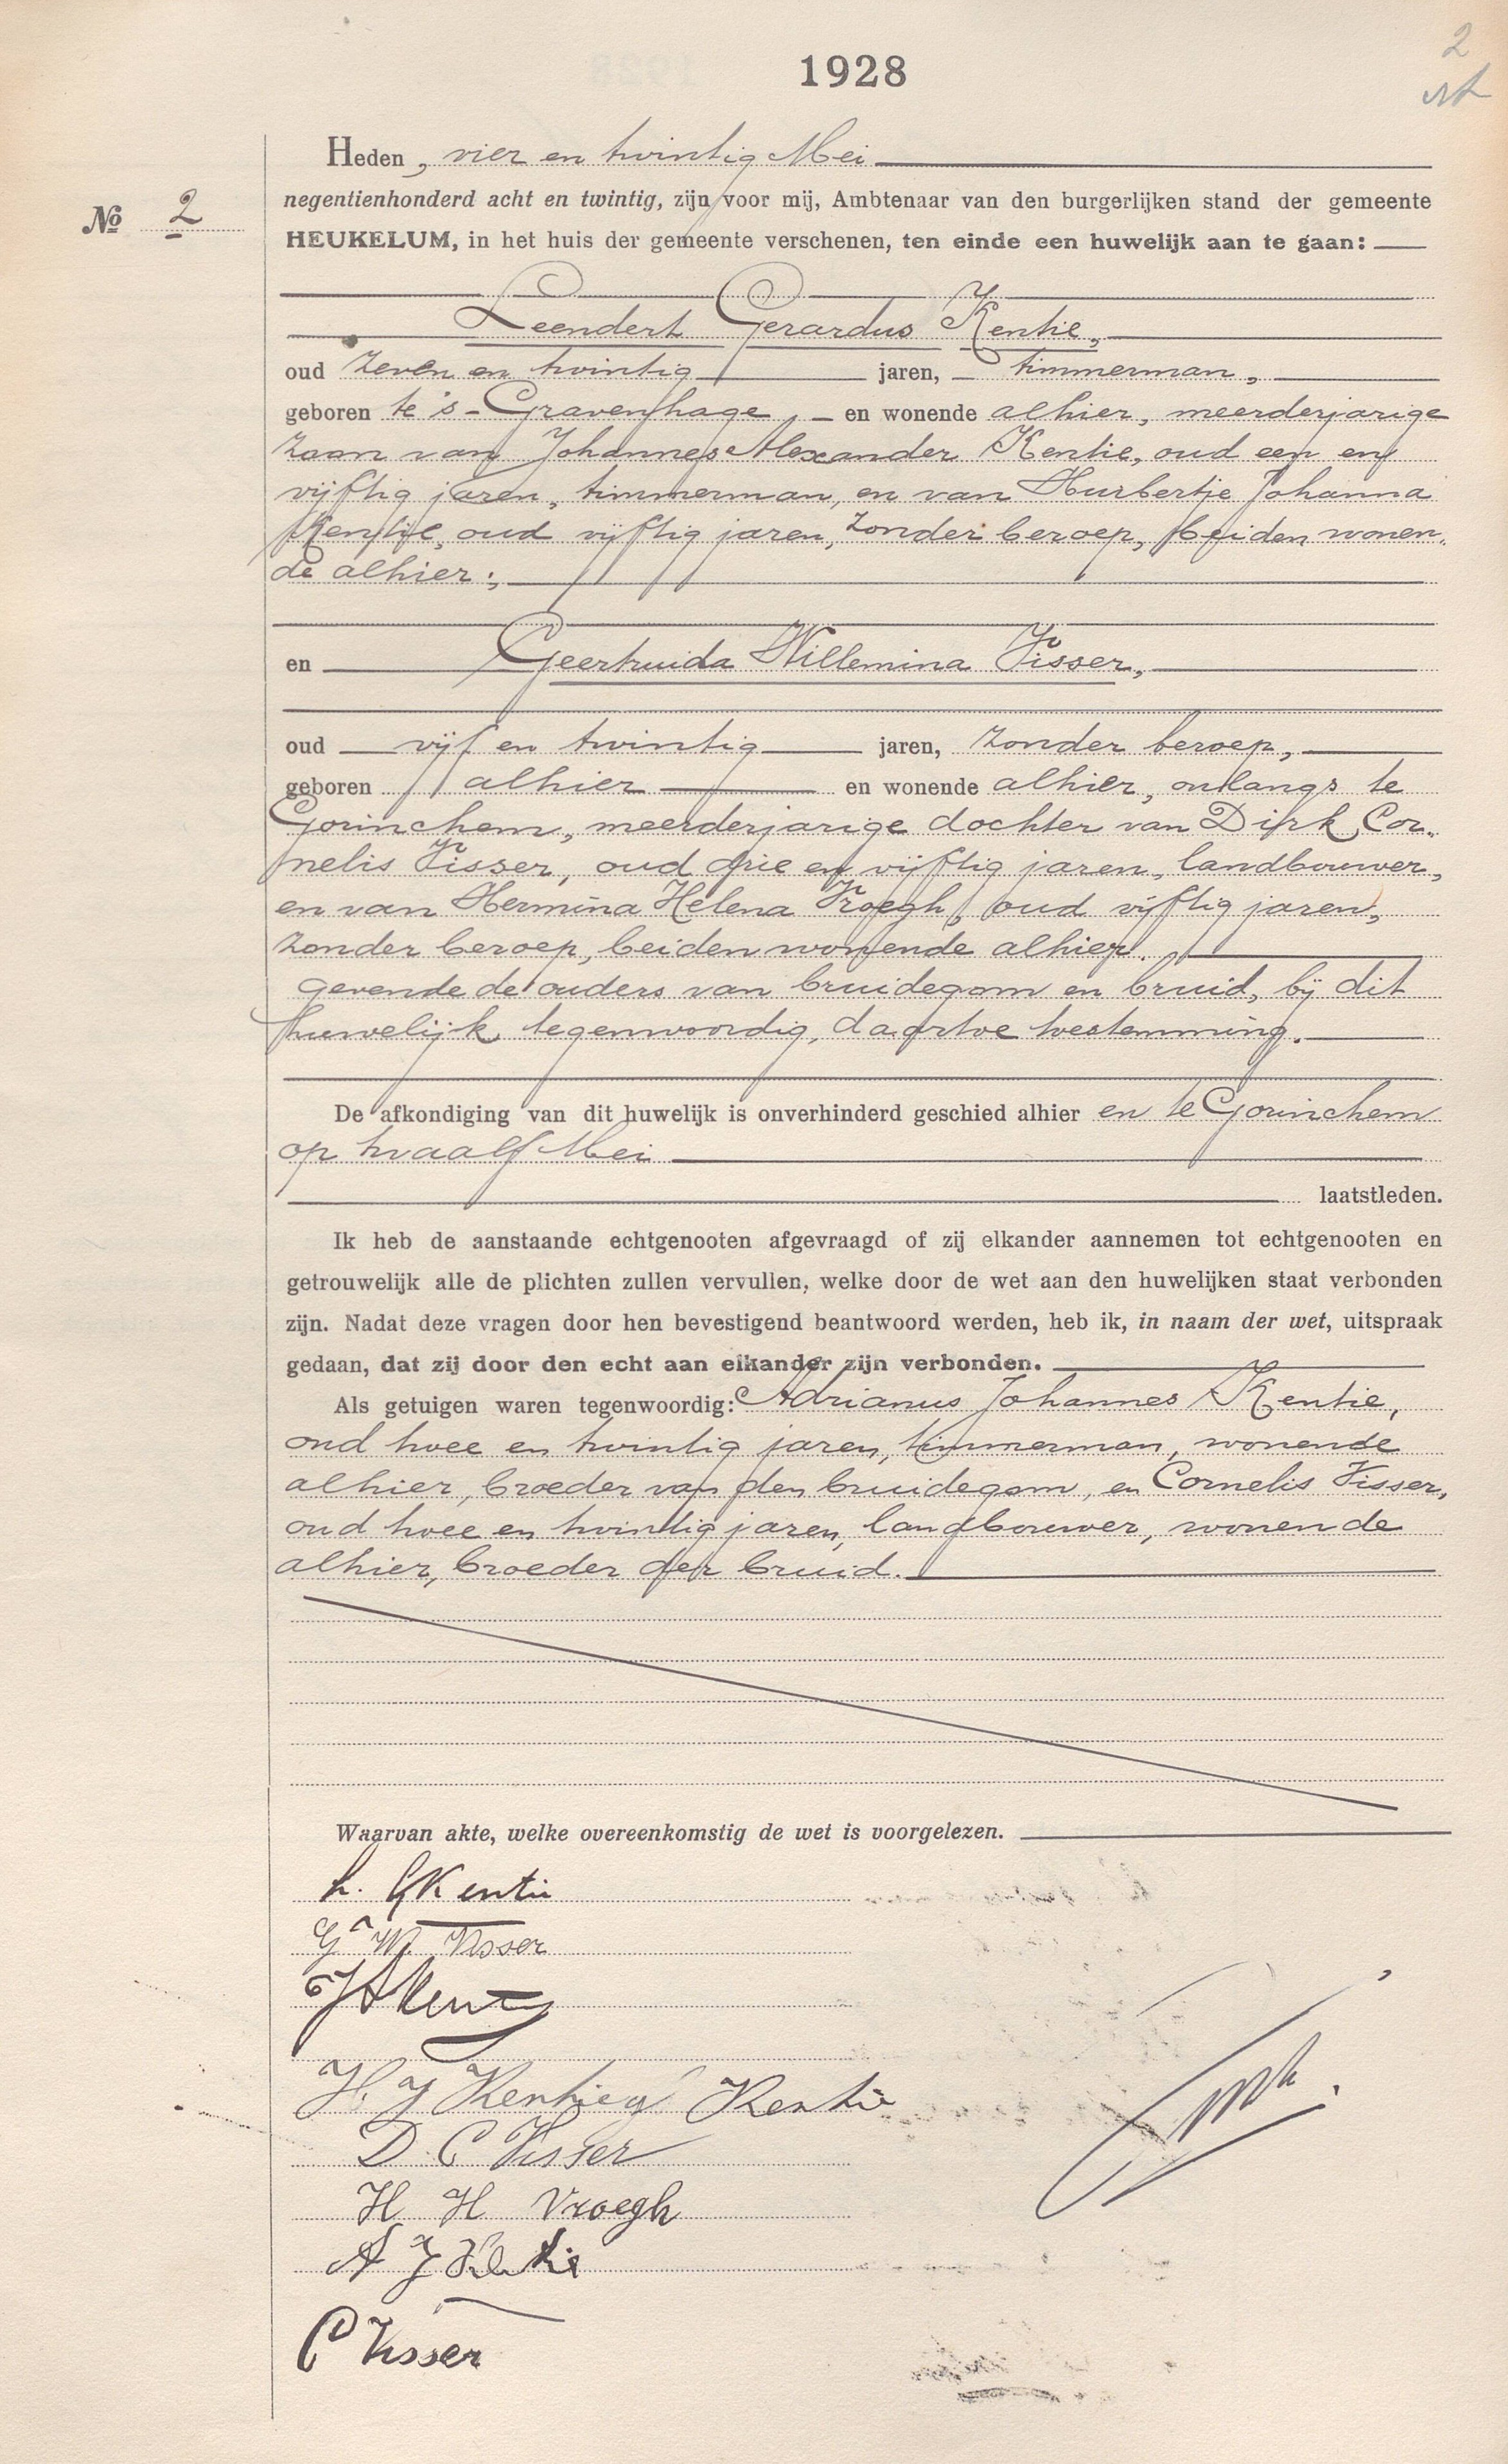 1928
2
Heden, vier en twintig Mei
No 2
negentienhonderd acht en twintig, zijn voor mij, Ambtenaar van den burgerlijken stand der gemeente
HEUKELUM, in het huis der gemeente verschenen, ten einde een huwelijk aan te gaan:
Leendert Gerardus Kentie,
oud zeven en twintig jaren, timmerman,
geboren te 's-Gravenhage, en wonende alhier, meerderjarige
zoon van Johannes Alexander Kentie, oud een en
vijftig jaren, timmerman, en van Huibertje Johanna
Kentie, oud vijftig jaren, zonder beroep, beiden wonen-
de alhier;
en Geertruida Willemina Visser,
oud vijf en twintig jaren, zonder beroep,
geboren alhier en wonende alhier, onlangs te
Gorinchem, meerderjarige dochter van Dirk Cor-
nelis Visser, oud drie en vijftig jaren, landbouwer,
en van Hermina Helena Vroegh, oud vijftig jaren,
zonder beroep, beiden wonende alhier.
gevende de ouders van bruidegom en bruid, bij dit
huwelijk tegenwoordig, daartoe toestemming.
De afkondiging van dit huwelijk is onverhinderd geschied alhier en te Gorinchem
op twaalf Mei
laatstleden.
Ik heb de aanstaande echtgenooten afgevraagd of zij elkander aannemen tot echtgenooten en
getrouwelijk alle de plichten zullen vervullen, welke door de wet aan den huwelijken staat verbonden
zijn. Nadat deze vragen door hen bevestigend beantwoord werden, heb ik, in naam der wet, uitspraak
gedaan, dat zij door den echt aan elkander zijn verbonden.
Als getuigen waren tegenwoordig: Adrianus Johannes Kentie,
oud twee en twintig jaren, timmerman, wonende
alhier, broeder van den bruidegom, en Cornelis Visser,
oud twee en twintig jaren, landbouwer, wonende
alhier, broeder der bruid.
Waarvan akte, welke overeenkomstig de wet is voorgelezen.
L. G Kentie
Ga W. Visser
JA Kentie
H. J Kentie Kentie
D. C Visser
H H Vroegh
A J Kentie
C Visser